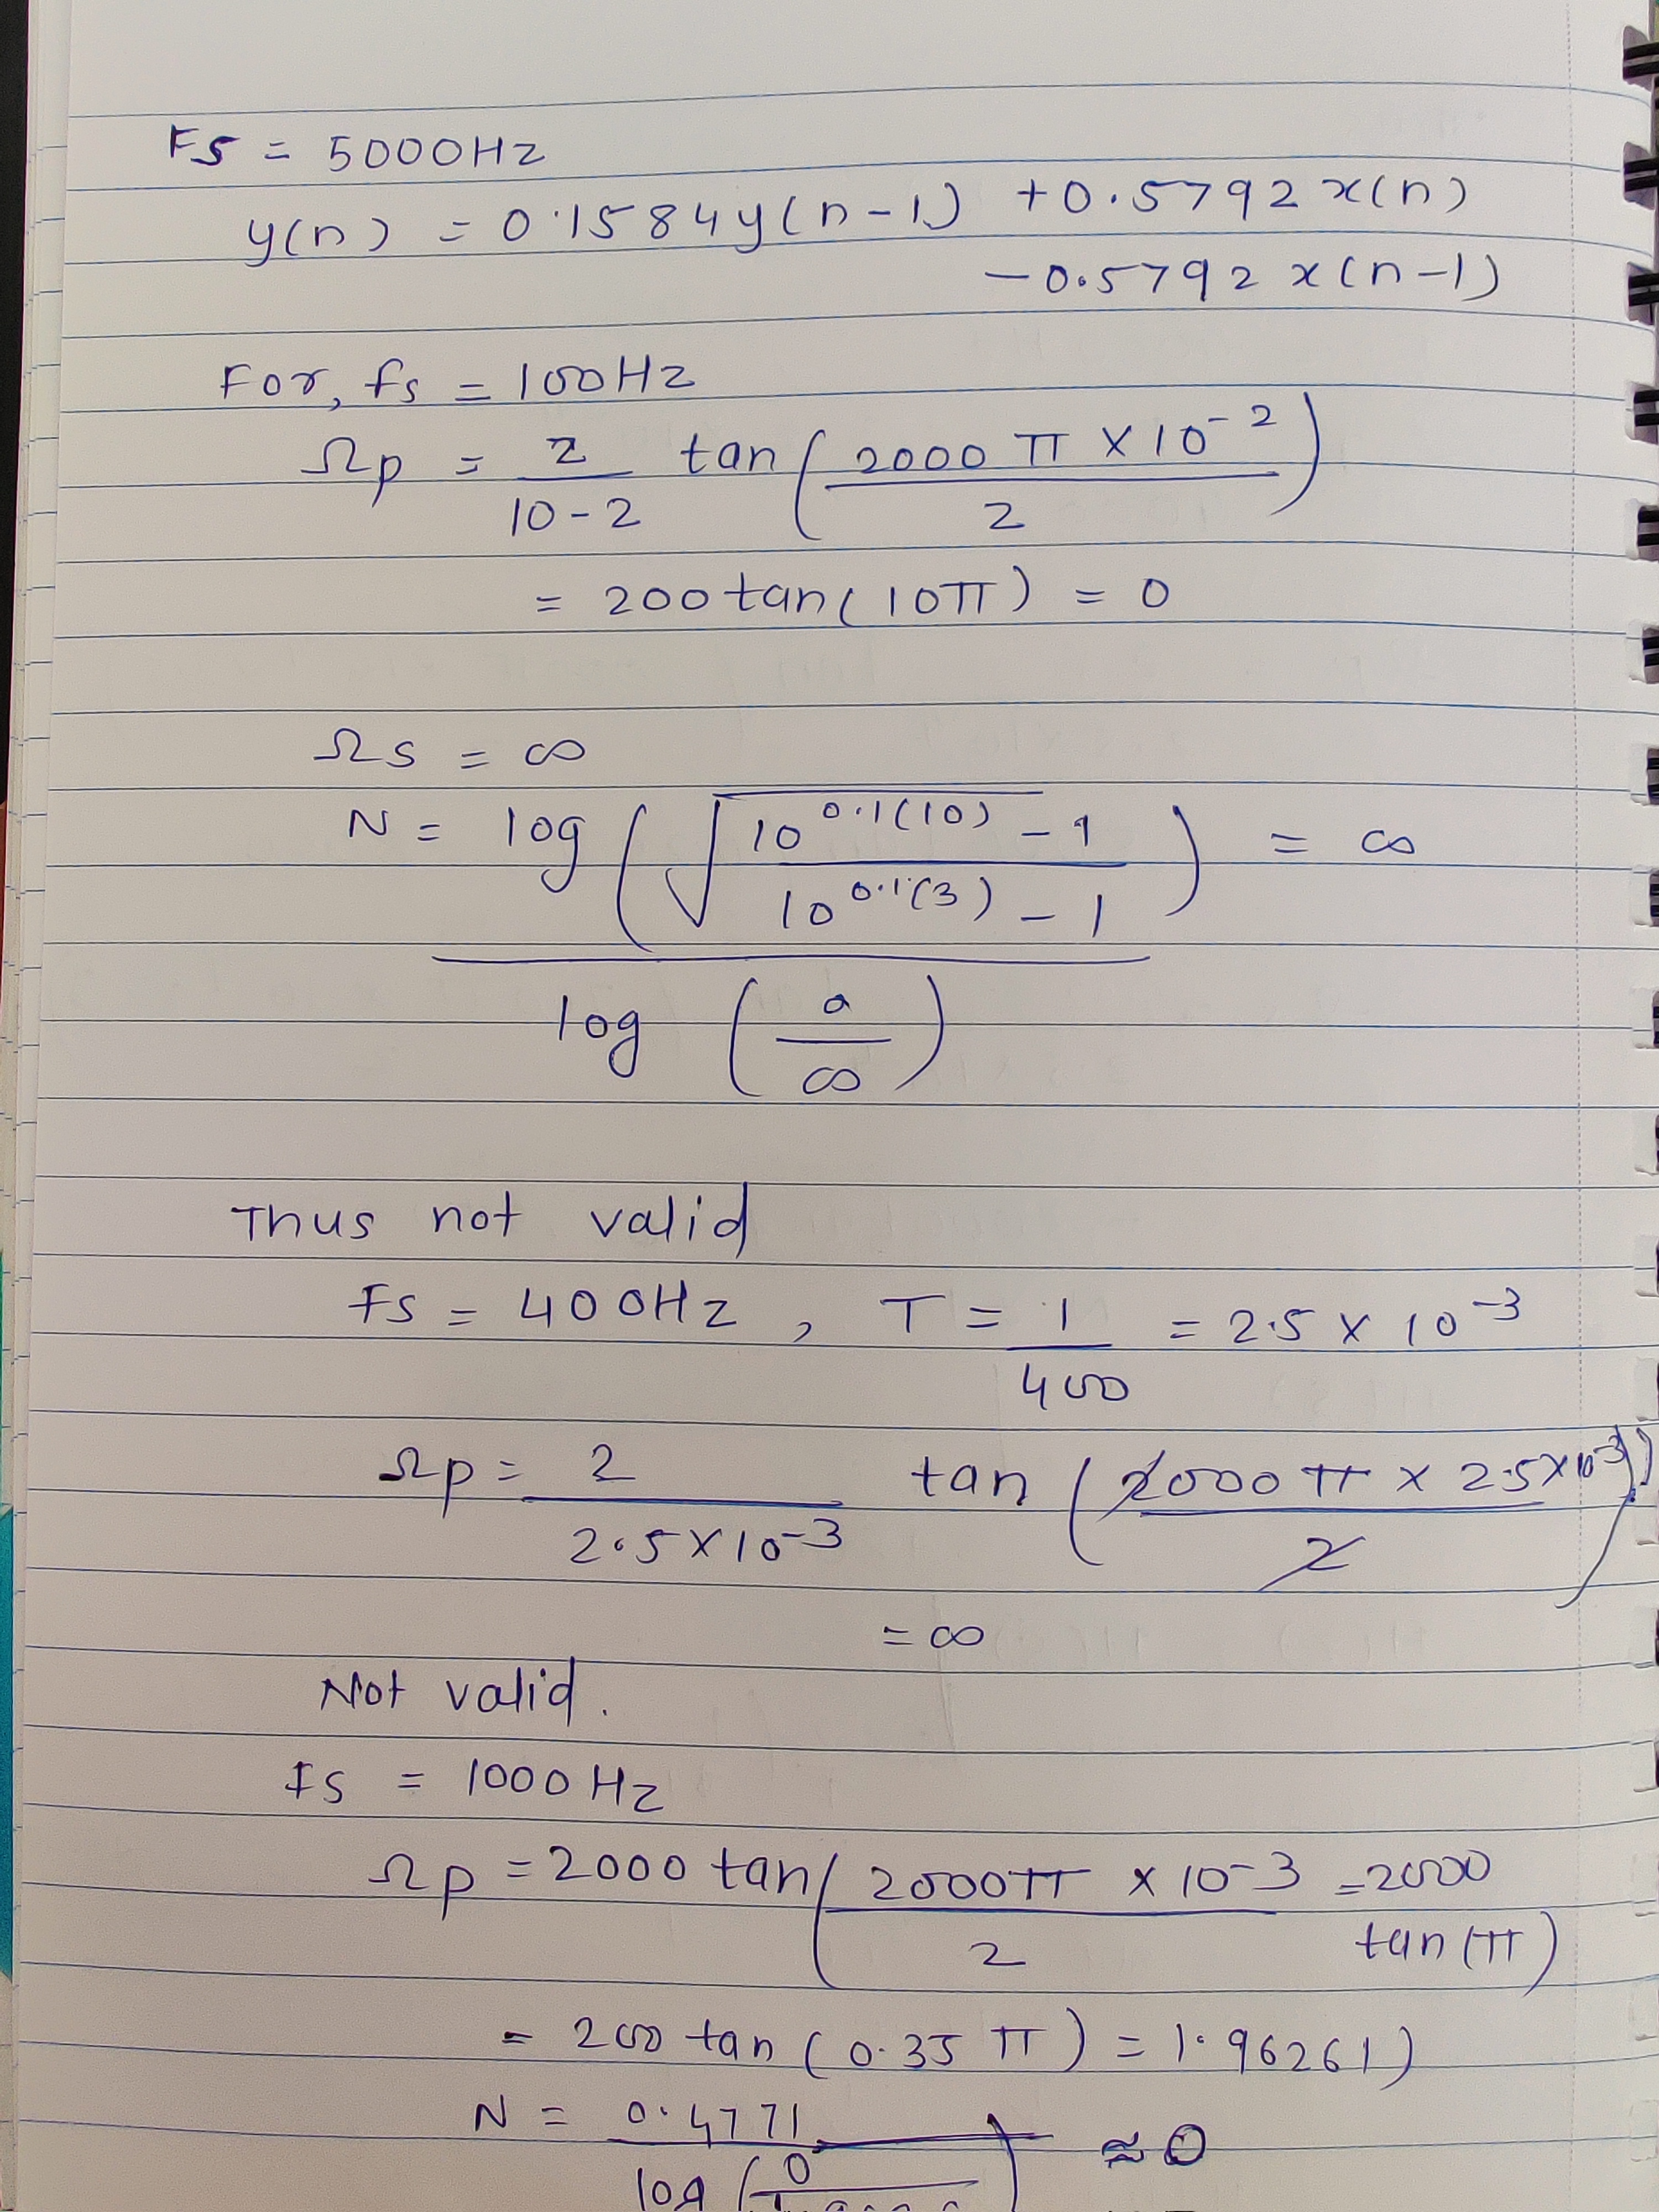 Fs = 5000Hz
y(n) = 0.1584y(n-1) + 0.5792x(n)
- 0.5792 x(n-1)
For, fs = 100Hz
Ωp = 2/10-2 tan(2000 π × 10^-2 / 2)
= 200 tan(10π) = 0
Ωs = ∞
N = log(√(10^0.1(10) - 1 / 10^0.1(3) - 1)) / log(0/∞) = ∞
Thus not valid
Fs = 400Hz, T = 1/400 = 2.5 × 10^-3
Ωp = 2/2.5×10-3 tan(2000 π × 2.5×10^-3 / 2)
= ∞
Not valid.
Fs = 1000Hz
Ωp = 2000 tan(2000π × 10-3 / 2 = 2000 tan(π)
= 200 tan(0.35 π) = 1.96261)
N = 0.4771 / log(0/ ) ≈ 0